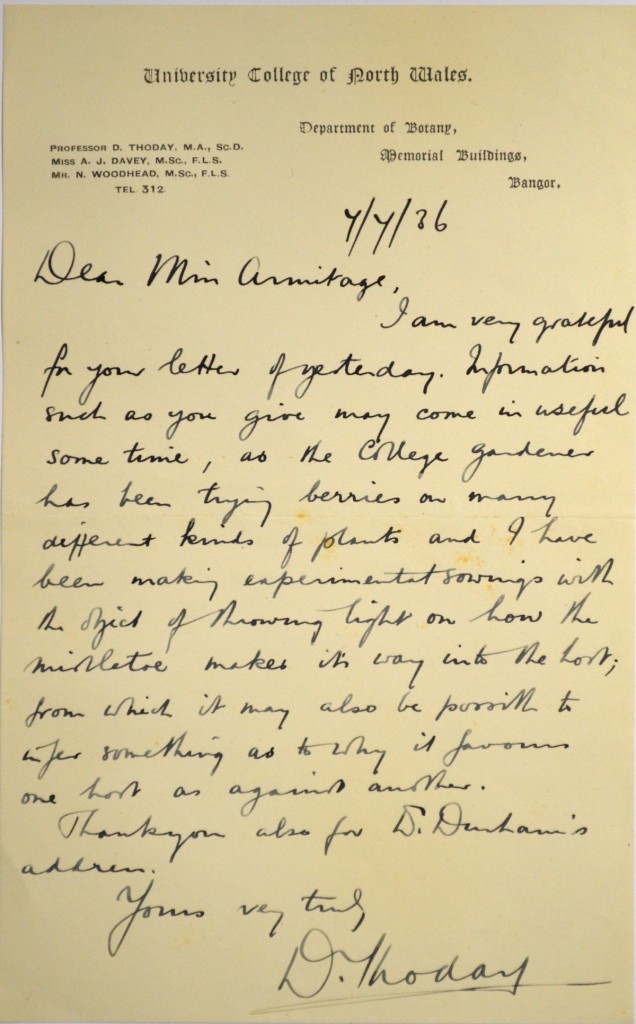 University College of North Wales.
Department of Botany,
Memorial Buildings,
Bangor.
PROFESSOR D. THODAY, M.A., SC.D.
MISS A. J. DAVEY, M.SC., F.L.S.
MR. N. WOODHEAD, M.SC., F.L.S.
TEL. 312.
7/7/36
Dear Miss Armitage,
I am very grateful
for your letter of yesterday. Information
such as you give may come in useful
some time, as the College gardener
has been trying berries on many
different kinds of plants and I have
been making experimental sowings with
the object of throwing light on how the
mistletoe makes its way into the host;
from which it may also be possible to
infer something as to why it favours
one host as against another.
Thankyou also for D. Dunham's
address.
Yours very truly
D. Thoday